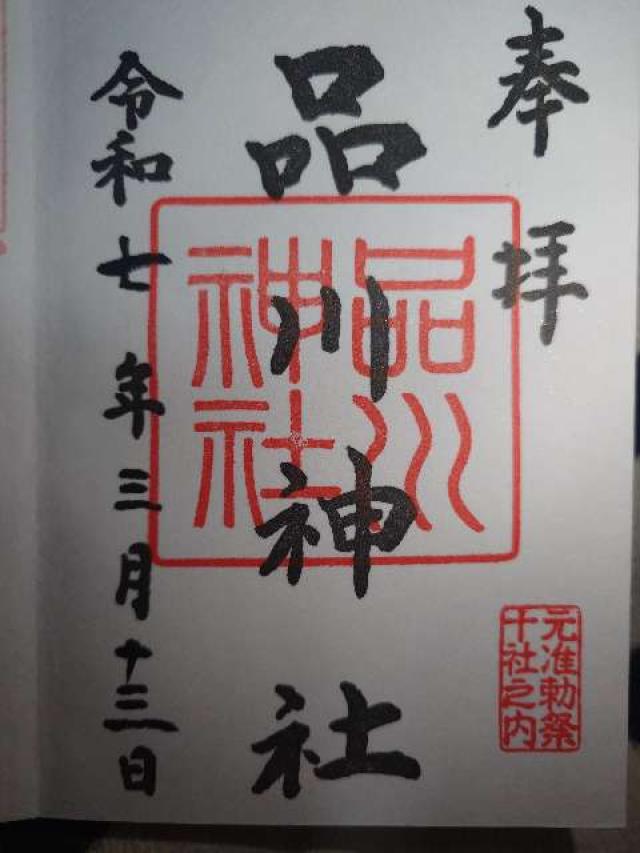 奉拝
品川神社
品川
神社
元准勅祭
十社之内
令和七年三月十三日